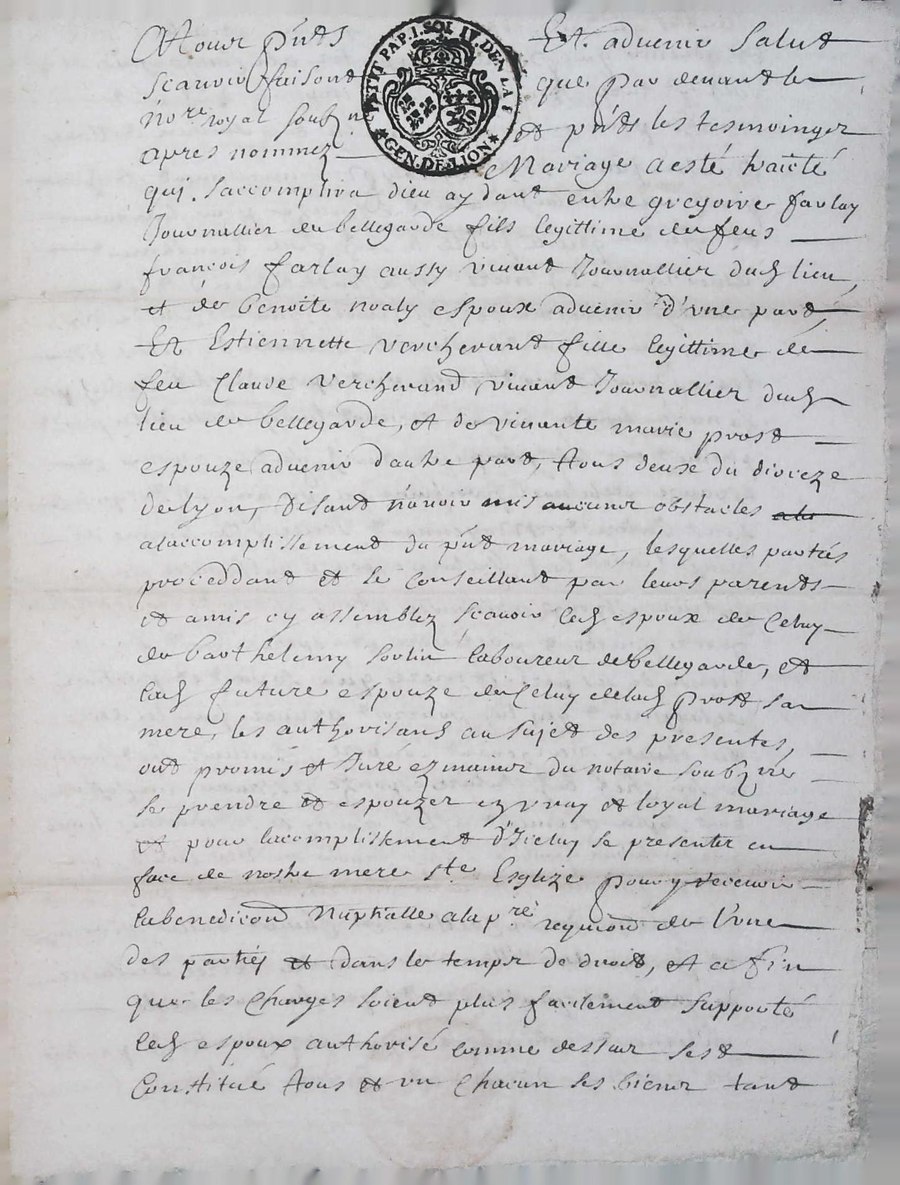 Atous pñts Et advenir Salut
Scavoir faisont que par devant le
no.re royal soubzné et pñts les tesmoinger
apres nommez Mariage a esté traicté
qui saccomplira dieu aydant entre gregoire farlay
Journallier de bellegarde fils legittime de feus
francois farlay aussy vivant Journallier dud lieu,
et de benoite noaly espoux advenir d'une part,
Et Estiennette Vercherand fille legittime de
feu Claude Vercherand vivant Journallier dud
lieu de bellegarde, et de vivante marie prost
espouze advenir dautre part, tous deux du dioceze
de lyon, disant n'avoir mis aucuner obstacles
alaccomplissement du pñt mariage, lesquelles parties
proceddant et se conseillant par leurs parents
et amis cy assemblez scavoir led espoux de Celuy
de barthelemy sorlin laboureur de bellegarde, et
lad future espouze de Celuy de lad prost sa
mere, les authorisans au sujet des presentes,
ont promis et Juré ez mains du notaire soubzné
se prendre et espouzer en vray et loyal mariage
et pour lacomplissement d'Iceluy se presenter en
face de nostre mere ste Eglize pour y recevoir
la benediction Nuptialle a la p.re requion de l'une
des parties et dans le temps de droit, et a fin
que les Charges soient plus facilement supporté
led espoux authorisé comme dessus sest
Constitué tous et un Chacun ses biens tant
PETIT PAP. I. SOL IV. DEN. LA F
GEN. DE LION